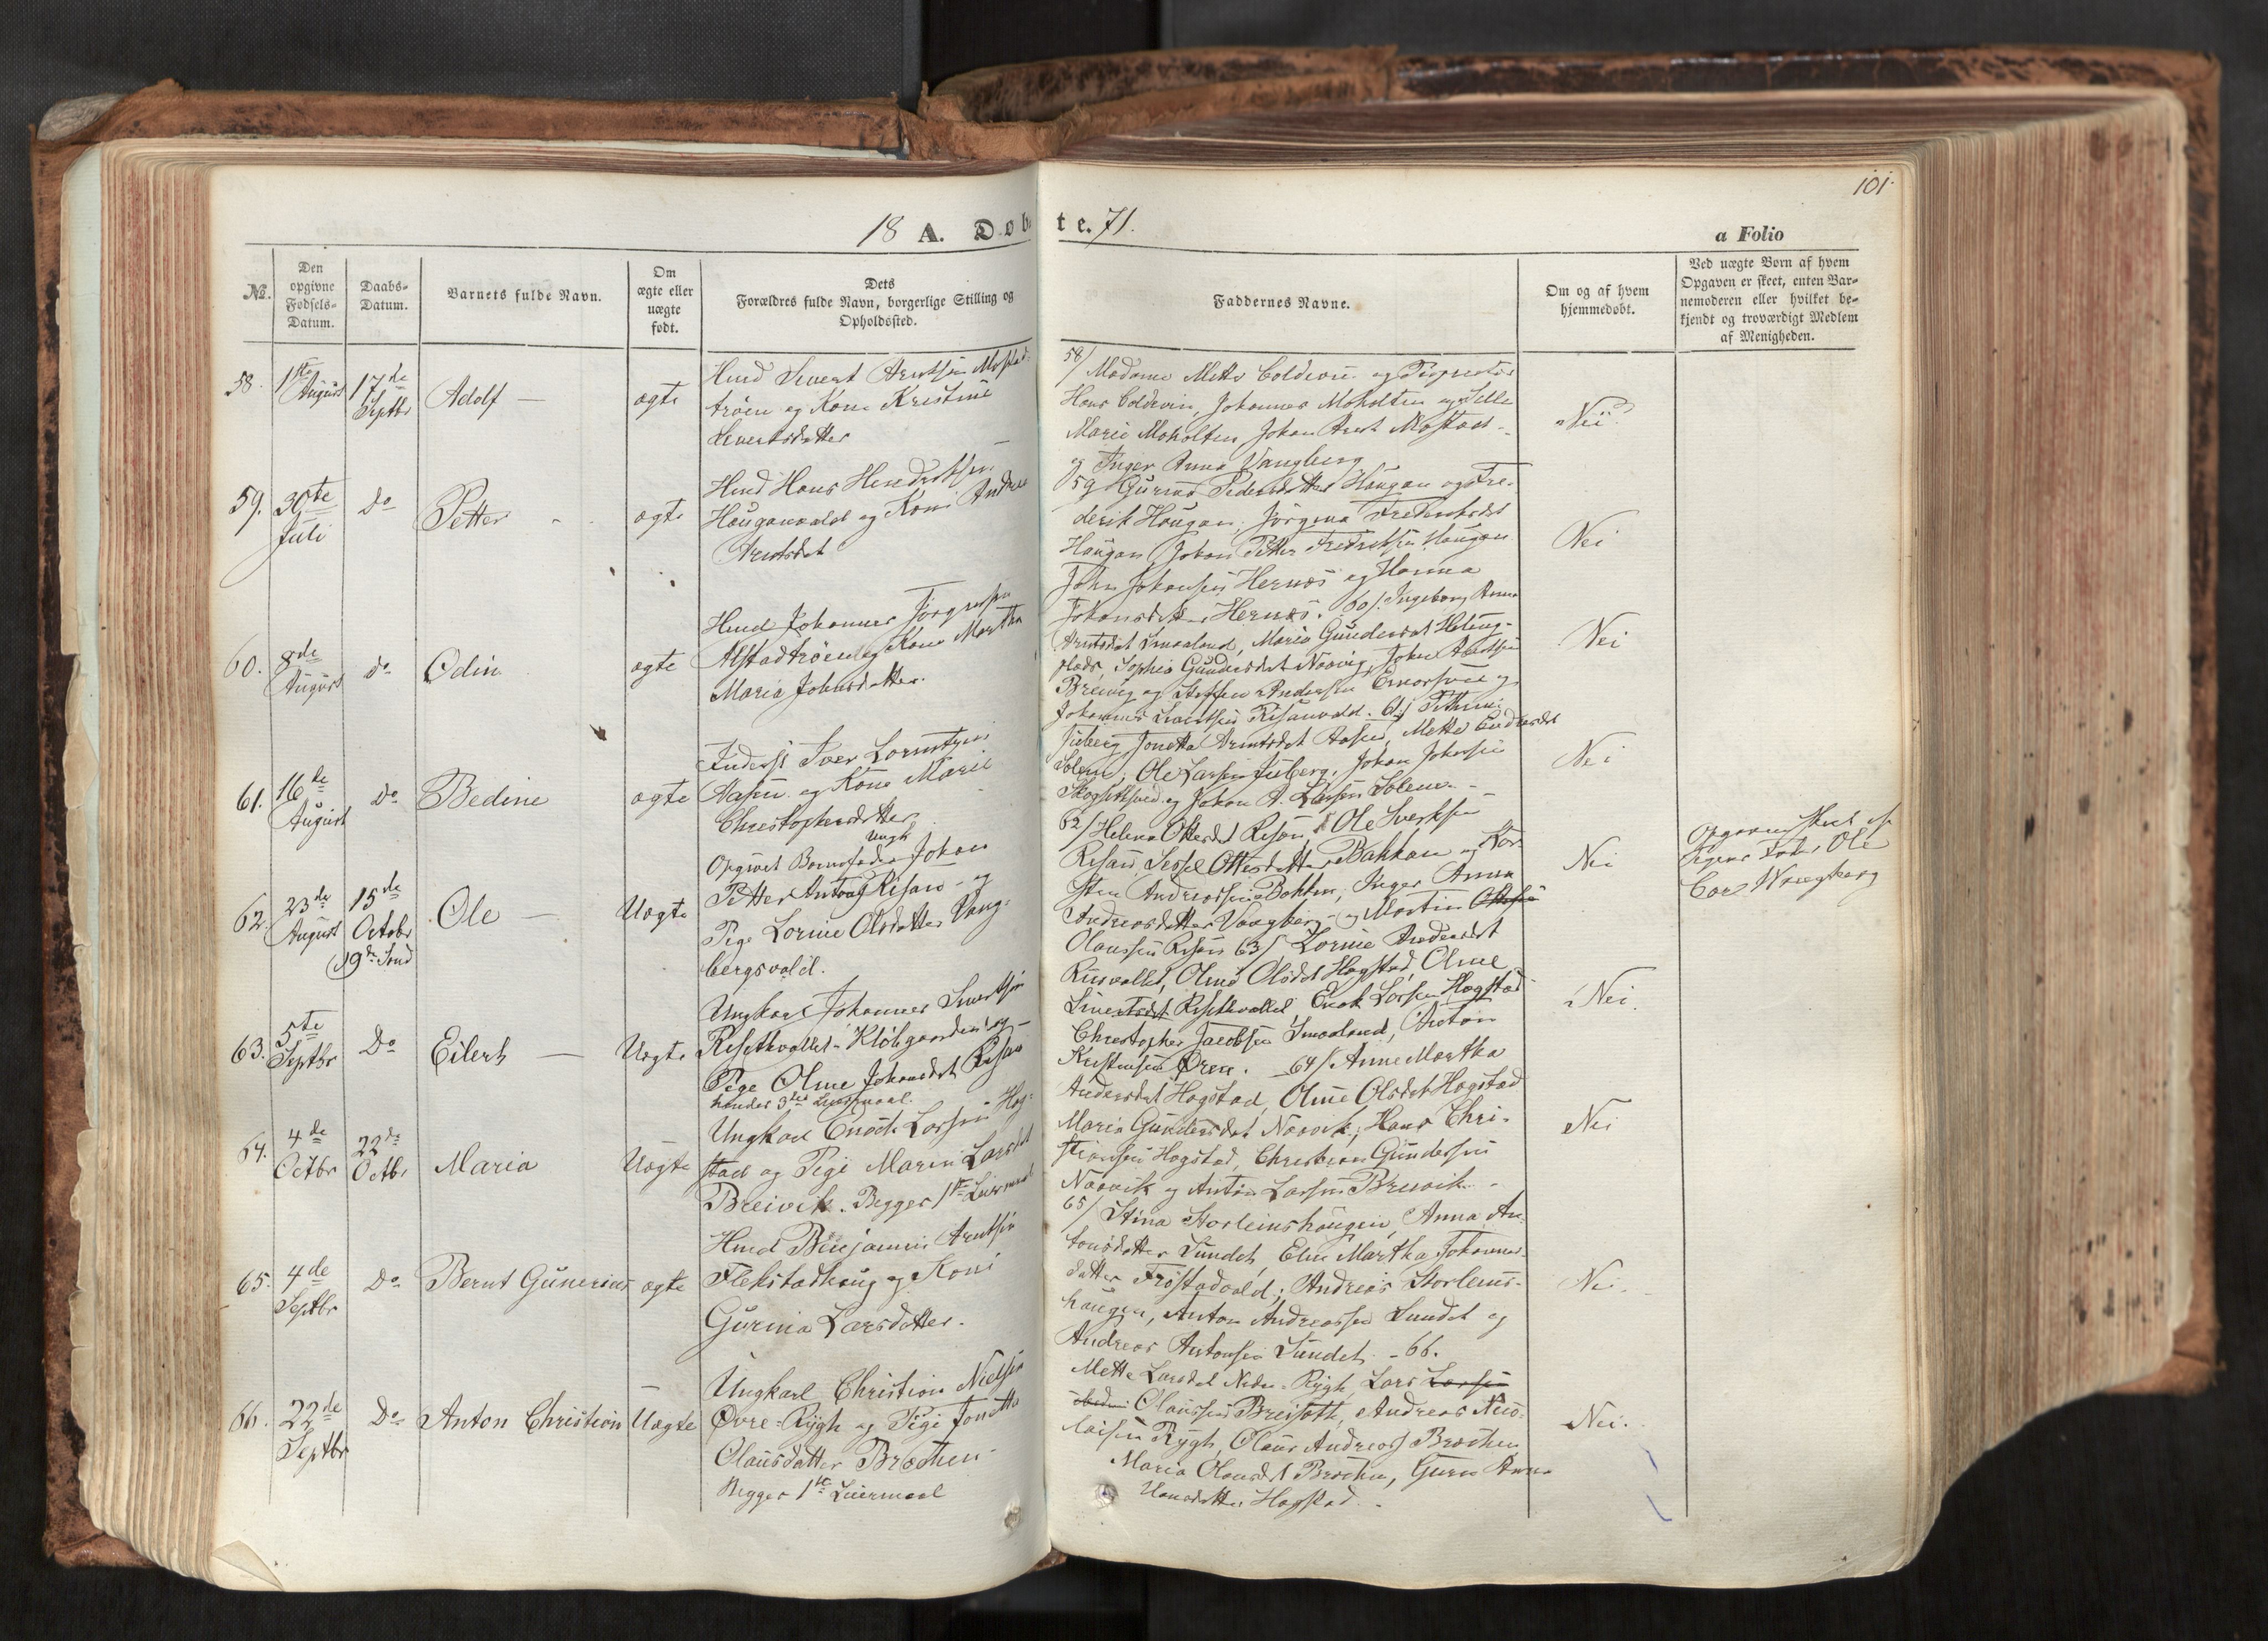 101.
18 A. Døbte. 71.
a Folio
No.
Den opgivne Fødsels-Datum.
Daabs-Datum.
Barnets fulde Navn.
Om ægte eller uægte født.
Dets Forældres fulde Navn, borgerlige Stilling og Opholdssted.
Faddernes Navne.
Om og af hvem hjemmedøbt.
Ved uægte Børn af hvem Opgaven er skeet, enten Barnemoderen eller hvilket bekjendt og troværdigt Medlem af Menigheden.
58. 1ste August 17de Septbr Adolf — ægte
Hmd Sivert Arntsen
trøen og Kone Kristine
Sivertsdatter
58/ Madame Mette Coldevin og Proprietær
Hans Coldevin, Johannes Moholten og
Marie Moholten, Johan Arnt Mostad
og Inger Anna Vangberg
Nei
59. 30te Juli Do Petter ægte
Hmd Hans Hendriksen
Hauganvald og Kone Andrea
Arntsdat
59 Gurine Pedersdatter Haugan og Fre-
derik Haugan, Jørgina Frederiksdat
Haugan, Johan Petter Fredriksen Haugan
John Johansen Hernes og Hanna
Johansdatter Hernes. 60/. Ingeborg Anna
Nei
60. 8de August do Odin ægte
Hmd Johannes Jørgensen
Alstadtrøen og Kone Martha
Maria Johnsdatter.
Arntsdat Smaaland, Maria Gundersdat
plads, Sophie Gundersdat Naavig, John
Breivig og Steffen Andersen
Johannes Sivertsen Risanvald. 61/
Nei
61. 16de August Do Bedine ægte
Inders. Iver Lorntsen
Aasen og Kone Marie
Christophersdatter
Juberg Jonetta Arntsdat Aasen, Mette
Solem, Ole Larsen Juberg, Johan Johnsen
og Johan A. Larsen Solem
Nei
62. 23de August 15de Octobr 19de Sønd Ole — Uægte
Opgivet Barnefader Ungk Johan
Petter Antons Risan og
Pige Lorine Olsdatter Vang-
bergsvald.
62/ Helena Ottesdat Risan, Ole Sivertsen
Risan, Ottesdatter Bakken og
Andreassen Bakken, Inger Anna
Andreasdatter Vangberg og Martin
Olaussen Risan 63/ Lorine Andersdat
Nei
Opgaven skeet af
Pigens Fader Ole
Vangberg
63. 5te Septbr Do Eilert — Uægte
Ungkarl Johannes Sivertsen
Risethvallet og
Pige Oline Johansdat Risan
hendes 3die Leiermaal.
Oline Olsdat Hogstad, Oline
Sivertsdat Risethvallet, Enok Larsen Hogstad
Christopher Jacobsen Smaaland, Anton
Kristensen Øren. 64/. Anne Martha
Nei.
64. 4de Octbr 22de Octbr Maria Uægte
Ungkarl Enock Larsen Hog-
stad og Pige Maren Larsdat
Breivik. Begges 1ste Leiermaal
Andersdat Hogstad, Oline Olsdat Hogstad
Maria Gundersdat Naavik, Hans Chri-
stiansen Hogstad, Christian Gundersen
Naavik og Anton Larsen Breivik.
Nei
65. 4de Septbr Do Bernt Gunerius ægte
Hmd Benjamin Arntsen
Flekstadhaug og Kone
Gurina Larsdatter.
65/ Stina Storleinshaugen, Anna An-
tonsdatter Sundet, Elen Martha Johannes-
datter Frøstadvald, Andreas Storleins-
haugen, Anton Andreassen Sundet og
Andreas Antonsen Sundet. 66.
Nei.
66. 22de Septbr Do Anton Christian Uægte
Ungkarl Christian Nielsen
Øvre-Rygh og Pige Jonetta
Olausdatter Brathen
Begges 1ste Leiermaal
Mette Larsdat Nedre-Rygh, Lars Larsen
Olaussen Andreas Nico-
laisen Rygh, Olaus Andreas
Maria Olausdat Guru Anna
Hansdatter Hogstad.
Nei.